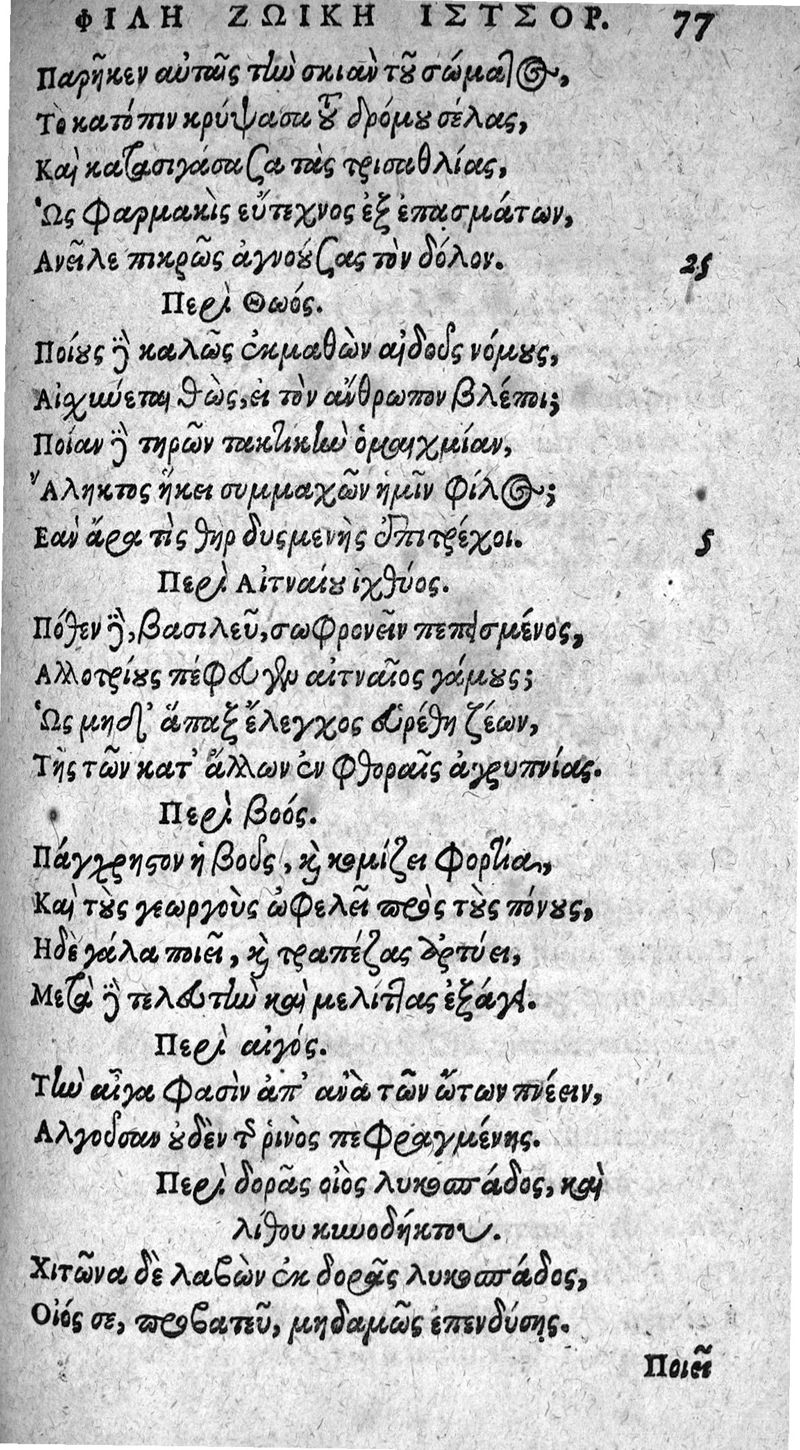 ΦΙΛΗ ΖΩΙΚΗ ΙΣΤΣΟΡ. 77
Παρῆκεν αὐταῖς τὴν σκιὰν τοῦ σώματος,
Τὸ κατόπιν κρύψασα τοῦ δρόμου σέλας,
Καὶ κατασιγάσασα τὰς τρισαθλίας,
Ὡς φαρμακὶς εὔτεχνος ἐξ ἐπασμάτων,
Ανεῖλε πικρῶς ἀγνοούσας τὸν δόλον. 25
Περὶ Θωός.
Ποίους δὲ καλῶς ἐκμαθὼν αἰδοῦς νόμους,
Αἰσχύνεται θὼς, εἰ τὸν ἄνθρωπον βλέποι;
Ποίαν δὲ τηρῶν τακτικὴν ὁμαιχμίαν,
Ἄληκτος ἥκει συμμαχῶν ἡμῖν φίλος;
Εαν ἄρα τὶς θὴρ δυσμενὴς ἐπιτρέχοι. 5
Περὶ Αἰτναίου ἰχθύος.
Πόθεν δὲ, βασιλεῦ, σωφρονεῖν πεπεισμένος,
Αλλοτρίους πέφευγεν αἰτναῖος γάμους;
Ὡς μηδ' ἅπαξ ἔλεγχος εὑρέθη ζέων,
Τῆς τῶν κατ' ἄλλων ἐν φθοραῖς ἀγρυπνίας.
Περὶ βοός.
Πάγχρηστον ἡ βοῦς, καὶ κομίζει φορτία,
Καὶ τοὺς γεωργοὺς ὠφελεῖ πρὸς τοὺς πόνους,
Ηδὲ γάλα ποιεῖ, καὶ τραπέζας ἀρτύει,
Μετὰ δὲ τελευτὴν καὶ μελίττας ἐξάγει.
Περὶ αἰγός.
Τὴν αἶγα φασὶν ἀπ' ἀνὰ τῶν ὤτων πνέειν,
Αλγοῦσαν οὐδὲν τῆς ῥινὸς πεφραγμένης.
Περὶ δορᾶς οἰὸς λυκοσπάδος, καὶ
λίθου κυνοδήκτου.
Χιτῶνα δὲ λαβὼν ἐκ δορᾶς λυκοσπάδος,
Οἰός σε, προβατεῦ, μηδαμῶς ἐπενδύσῃς.
Ποιεῖ